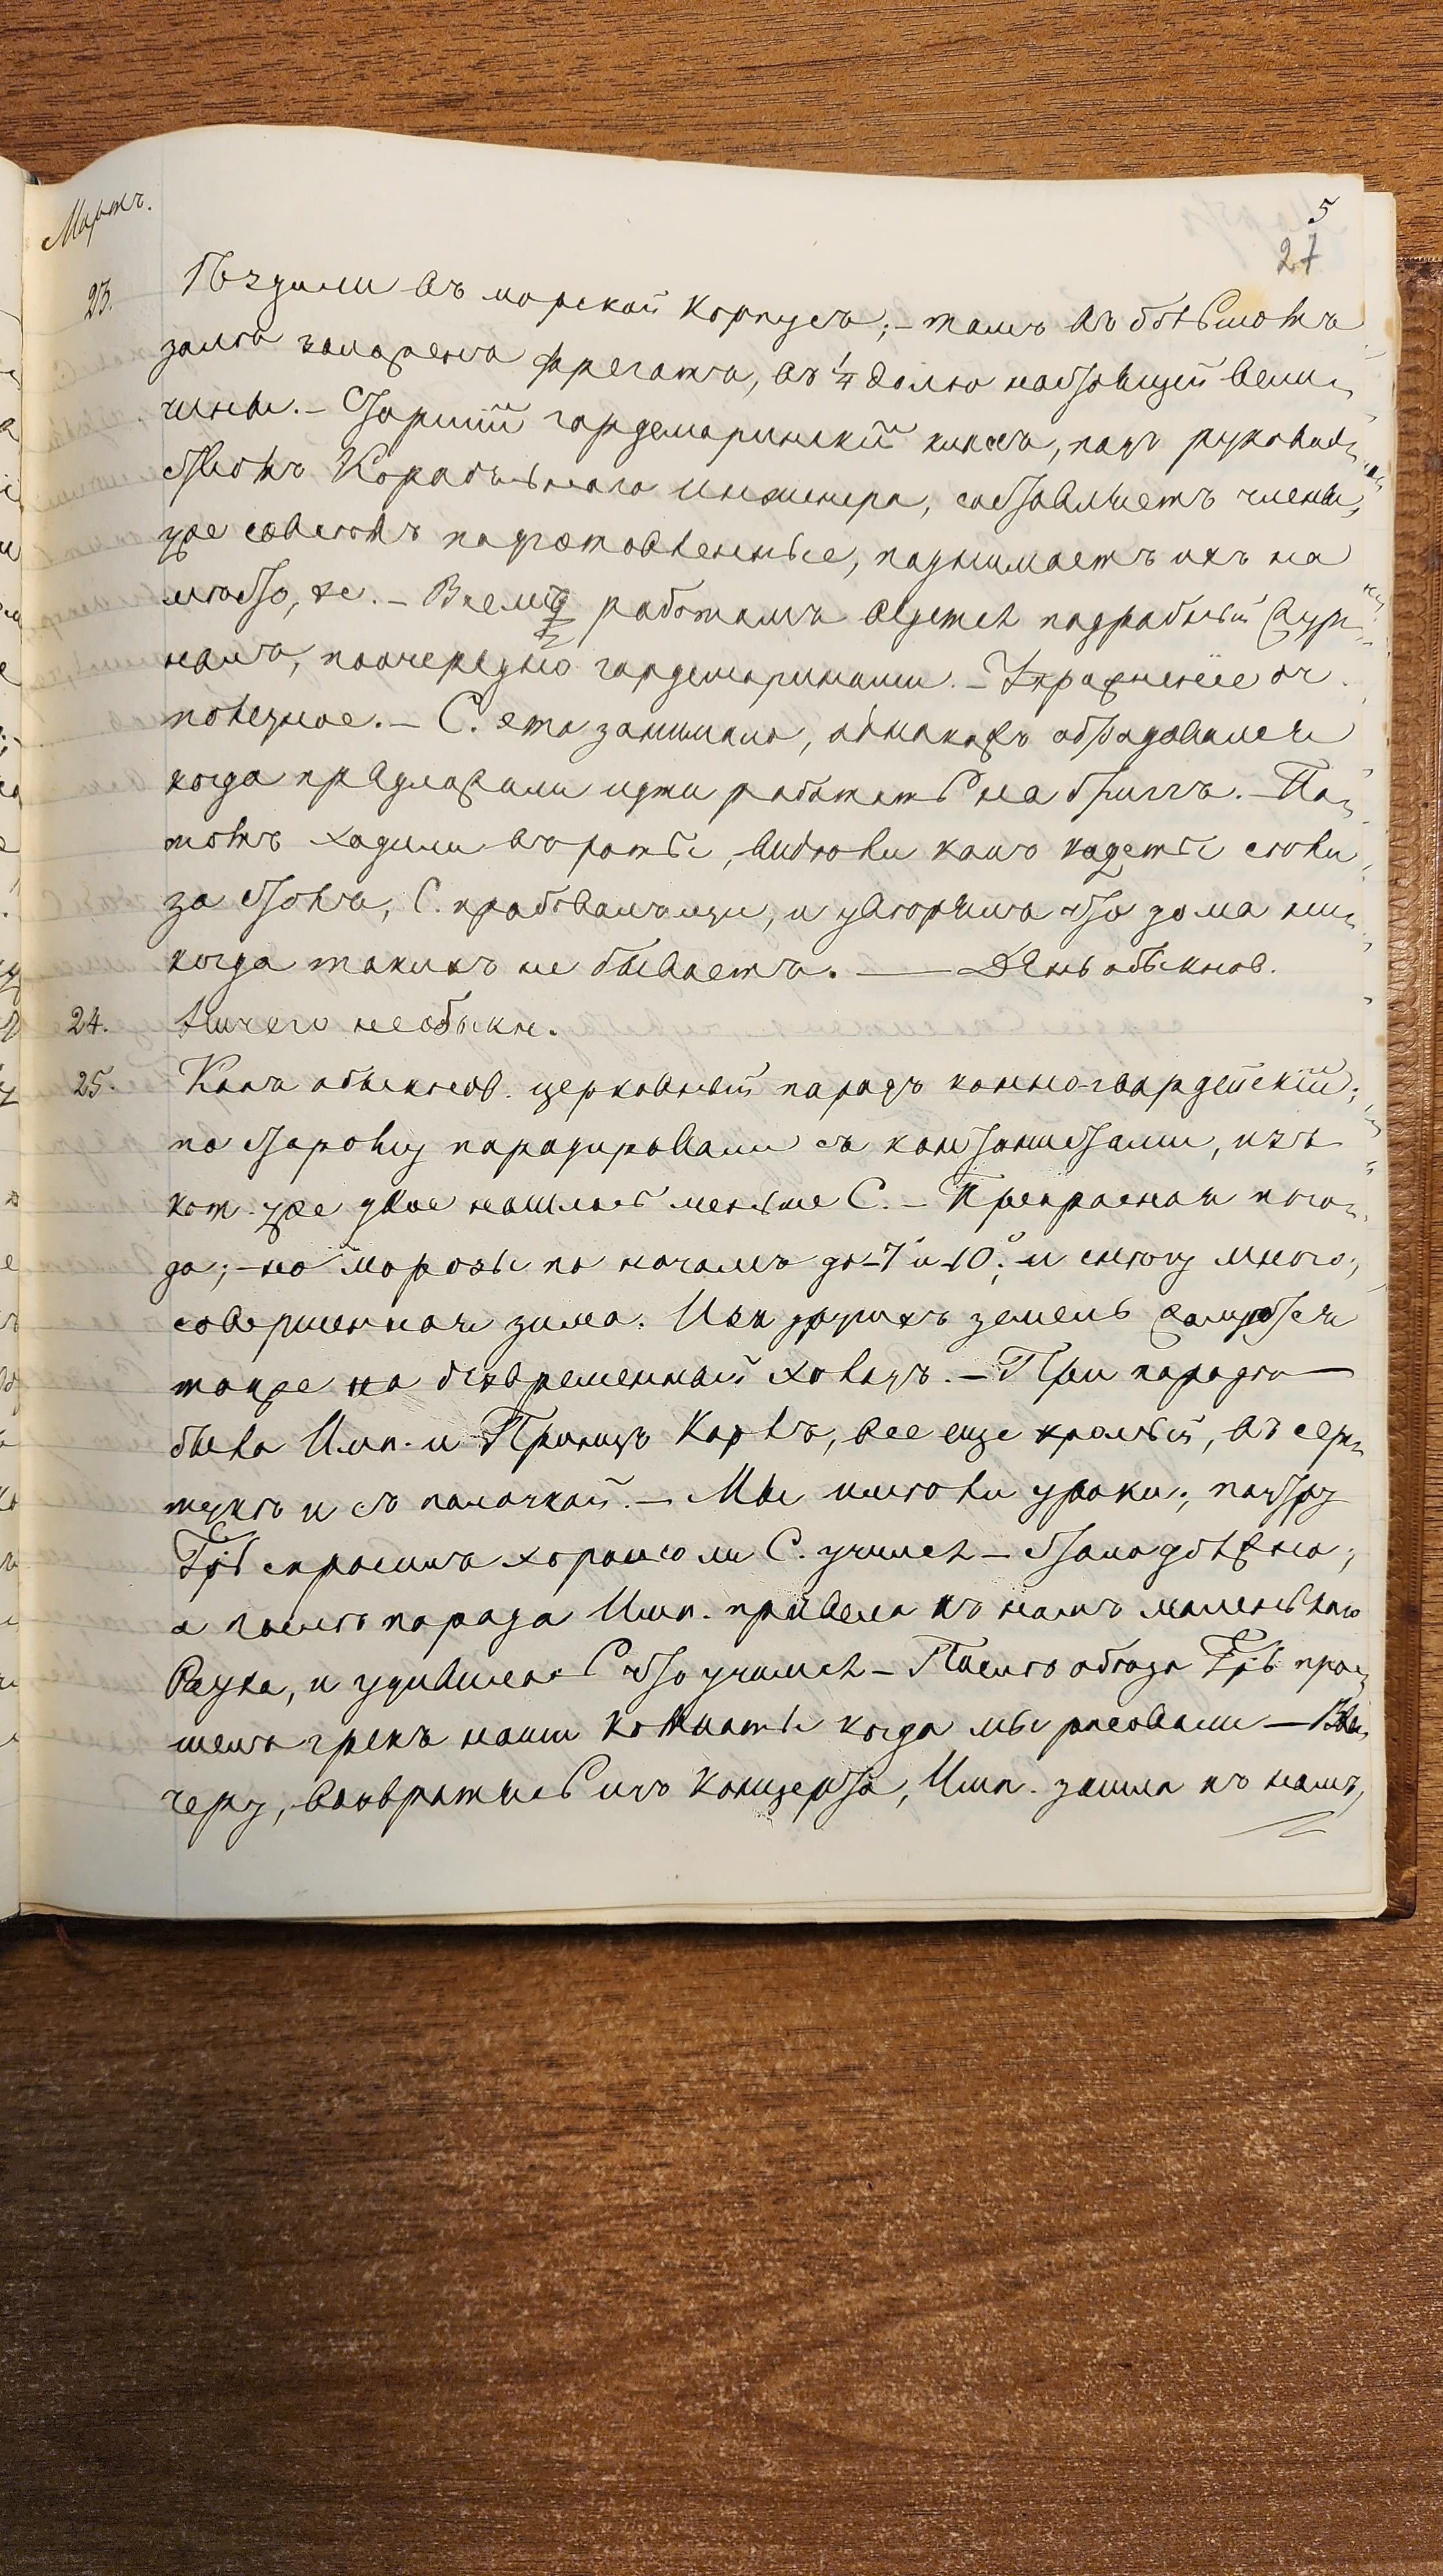 Мартъ.
5
27
23. Ѣздили въ морской корпусъ; – тамъ въ большомъ
залѣ заложенъ фрегатъ, въ 1/4 долю настоящей вели-
чины. – Старшій гардемаринскій классъ, подъ руковод-
ствомъ Корабельнаго инженера, составляетъ члены,
уже совсѣмъ подготовленные, поднимаетъ ихъ на
мѣсто, &c. – Всемъ работамъ ведется подробный жур-
налъ, поочередно гардемаринами. – Упражненіе оч.
полезное. – С. это занимало, однакожъ обрадовался
когда предложили идти работать на бригъ. – По-
томъ ходили въ роты, видѣли какъ кадеты сѣли
за столъ, С. пробовалъ щи, и увѣрялъ что дома ни-
когда такихъ не бываетъ. — День обыкнов.
24. Ничего необыкн.
25. Какъ обыкнов. церковный парадъ конно-гвардейскій;
по старому парадировали съ кантонистами, изъ
кот. уже двое нашлись меньше С. – Прекрасная пого-
да; – но морозы по ночамъ до –7 и –10°; и снѣгу много;
совершенная зима. Изъ другихъ земель жалуются
также на безвременный холодъ. – При парадѣ
была Имп. и Принцъ Карлъ, все еще хромый, въ сер-
тукѣ и съ палочкой. – Мы имѣли уроки; поутру
Гдь спросилъ хорошо ли С. учился – стало должно;
а послѣ парада Имп. привела къ намъ маленькаго
Рауха, и удивилась что учимся – Послѣ обѣда Гдь про-
шелъ чрезъ наши комнаты когда мы рисовали – Вве-
черу, возвратясь изъ концерта, Имп. зашла къ намъ,